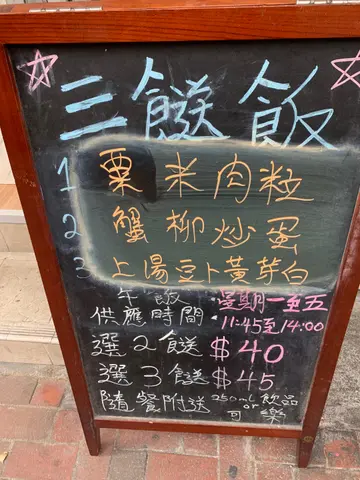 三餸飯
1 粟米肉粒
2 蟹柳炒蛋
3 上湯豆卜黃芽白
午餸
供應時間
星期一至五
11:45至14:00
選2餸 $40
選3餸 $45
隨餐附送 250mL可樂 or 飲品